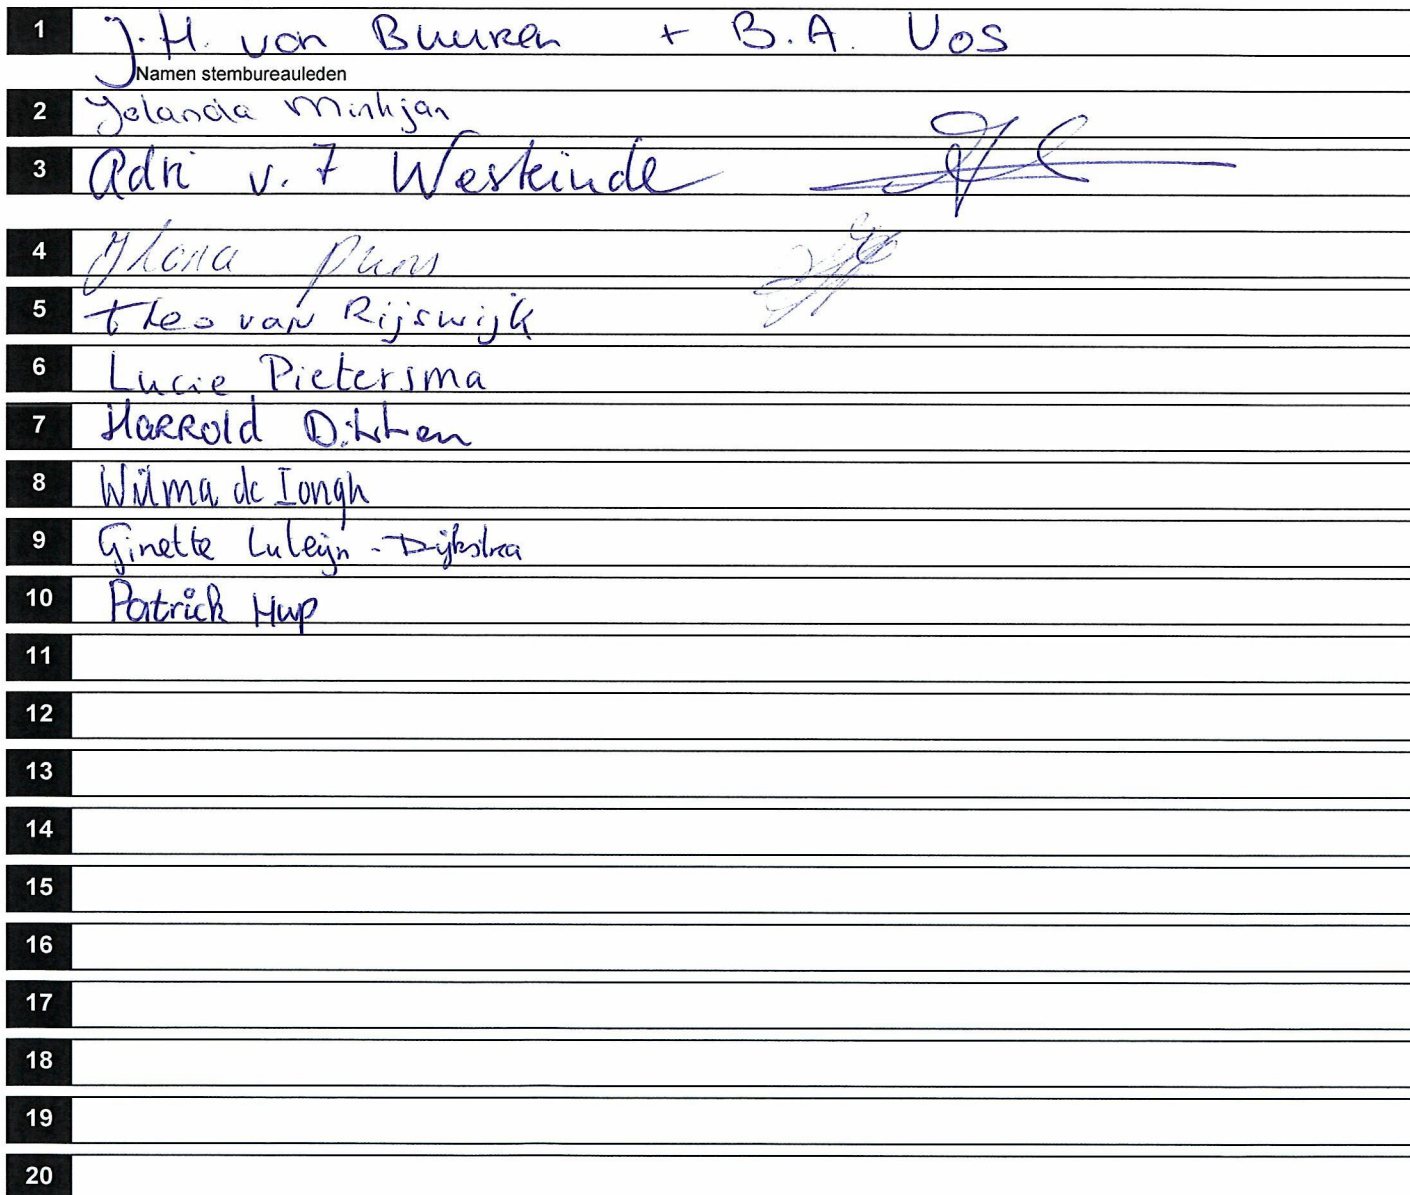 1 J.H. van Buuren + B.A. Vos
Namen stembureauleden
2 Yolanda Minkjan
3 Adri v. 't Westeinde
4 Ilona
5 Theo van Rijswijk
6 Lucie Pietersma
7 Harrold
8 Wilma de Iongh
9 Ginette Luleijn - Dijkstra
10 Patrick Hup
11
12
13
14
15
16
17
18
19
20